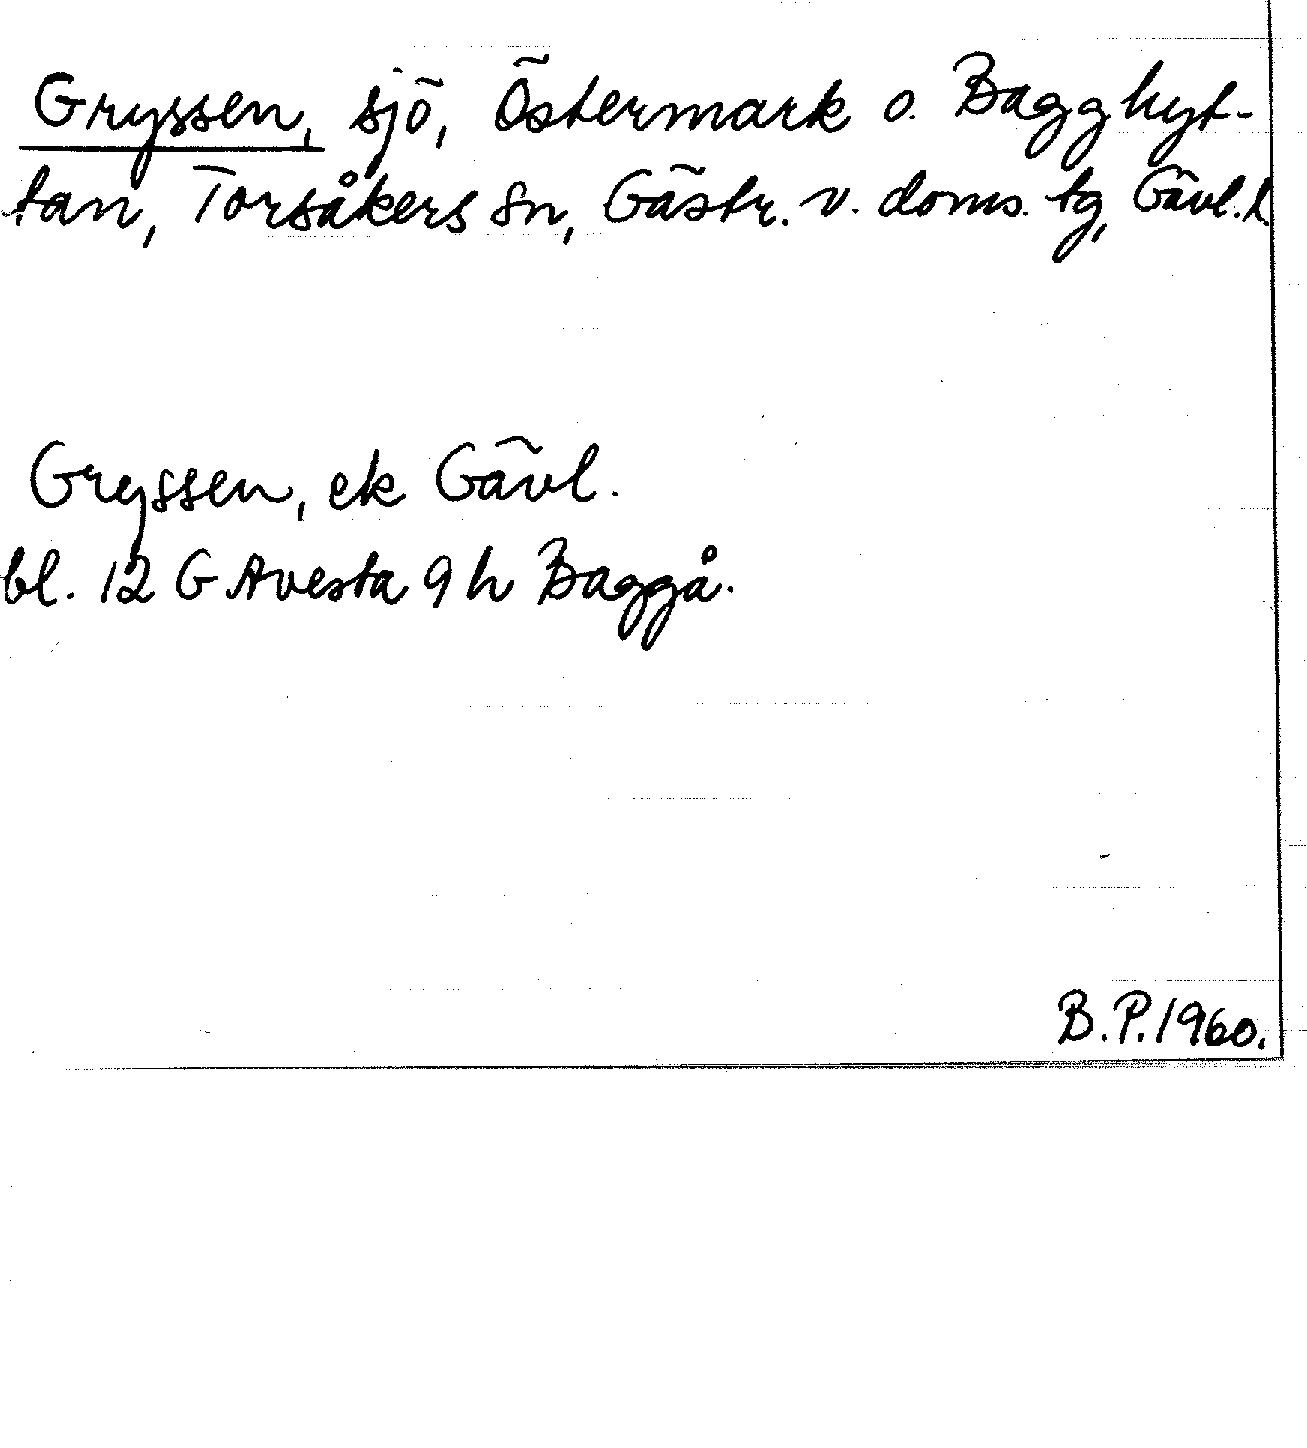 Gryssen, sjö, Östermark o. Bagghyt-
tan, Torsåkers sn, Gästr. v. doms. tg, Gävl. l.
Gryssen, ek Gävl.
bl. 12 G Avesta 9 h Baggå.
B. P. 1960.